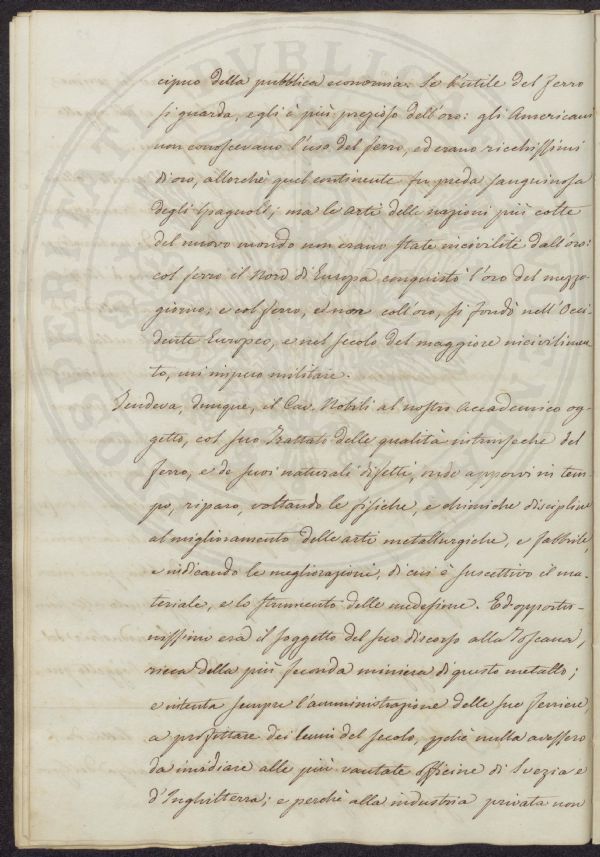 cipuo della pubblica economia. Se l'utile del ferro
si guarda, egli è più prezioso dell'oro: gli Americani
non conoscevano l'uso del ferro, ed erano ricchissimi
di oro, allorchè quel continente fu preda sanguinosa
degli Spagnoli; ma le arti delle nazioni più colte
del nuovo mondo non erano state incivilite dall'oro:
col ferro il Nord di Europa conquistò l'oro del mezzo-
giorno; e col ferro, e non coll'oro, si fondò nell'Occi-
dente Europeo, e nel secolo del maggiore incivilimen-
to, un impero militare.
Tendeva, dunque, il Cav. Nobili al nostro Accademico og-
getto, col suo Trattato delle qualità intrinseche del
ferro, e de suoi naturali difetti, onde apporvi in tem-
po, riparo, voltando le fisiche, e chimiche discipline
al miglioramento delle arti metallurgiche, e fabbrili,
e indicando le megliorazioni, di cui è suscettivo il ma-
teriale, e lo strumento delle medesime. Ed opportu-
nissimo era il soggetto del suo discorso alla Toscana,
ricca della più feconda miniera di questo metallo;
e intenta sempre l'amministrazione delle sue ferriere,
a profittare dei lumi del secolo, perchè nulla avessero
da invidiare alle più vantate officine di Svezia e
d'Inghilterra; e perchè alla industria privata non
PROSPERITATI PUBLICAE